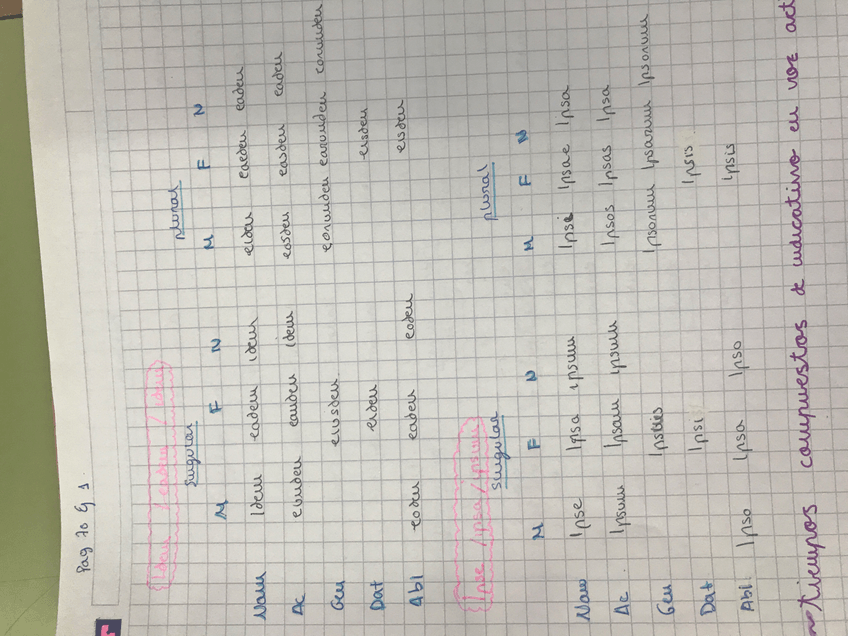 Pag 70 Ej 1.
Idem / eadem / idem
Singular plural
M F N M F N
Nom Idem eadem idem eidem eaedem eadem
Ac eumdem eamdem idem eosdem easdem eadem
Gen eiusdem eorumdem earumdem eorumdem
Dat eidem eisdem
Abl eodem eadem eodem eisdem
Ipse / ipsa / ipsum
Singular plural
M F N M F N
Nom Ipse Ipsa ipsum Ipsi Ipsae Ipsa
Ac. Ipsum Ipsam ipsum Ipsos Ipsas Ipsa
Gen Ipsorum Ipsarum Ipsorum
Dat Ipsi Ipsis
Abl. Ipso Ipsa Ipso Ipsis
Tiempos compuestos de indicativo en voz act